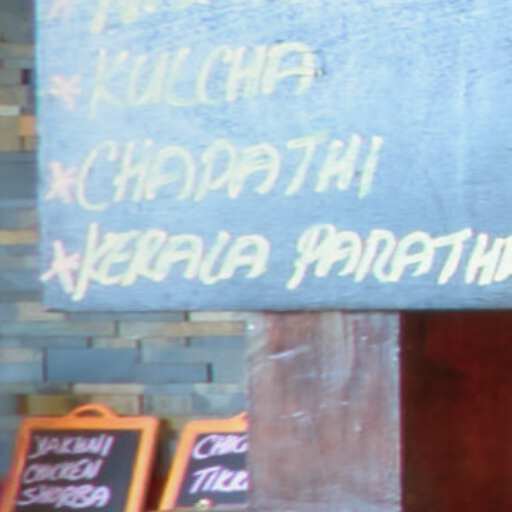 * KULCHA
* CHAPATHI
* KERALA PARATH
YAKHNI
CHICKEN
SHORBA